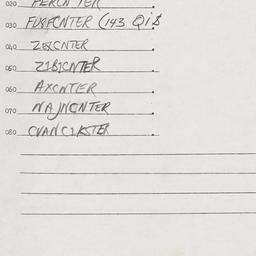 020 PERCNTER
030 FUXFCNTER (143 Qi$
040 ZEXCNTER
050 ZIBICNTER
060 AXCNTER
070 NAJNCNTER
080 CVANCIKSTER